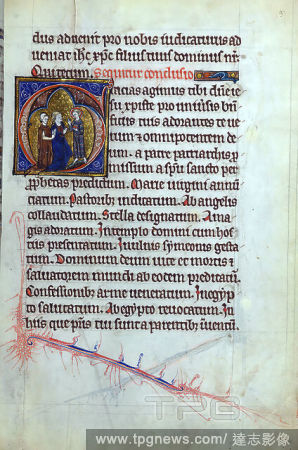 dus advenit pro nobis iudicaturus ad
veniat ihc xpc filius tuus dominus nr
Qui tecum. Sequitur conclusio
racias agimus tibi dne ie
su xpiste pro universis bn
ficiis tuis adorantes te ve
rum & omnipotentem de
um. a patre patriarchis pr
missum a spu sancto per
prophetas predictum. Marie virgini annū
ciatum. Pastorib; indicatum. Ab angelis
collaudatum. Stella designatum. A ma
gis adoratum. In templo domini cum hos
tiis presentatum. In ulnis symeonis gesta
tum. Dominum deum vite ac mortis &
salvatorem mundi ab eodem predicatū.
Confessionib; anne veneratum. In egyp
to salvatum. Ab egypto revocatum. In
hiis que pris tui sunt a parentib; inventū.
TPG
www.tpgnews.com/達志影像